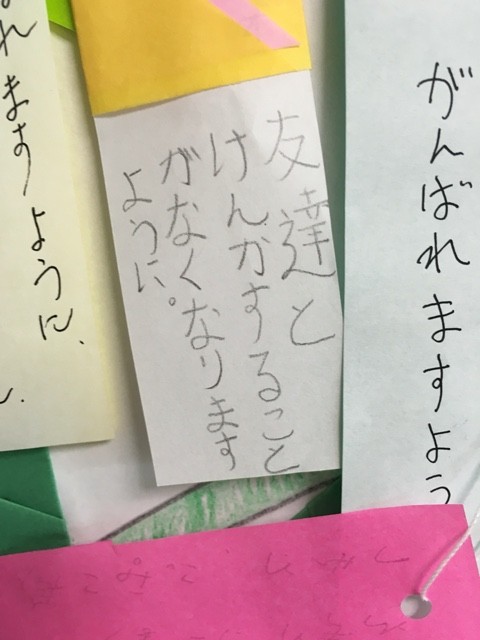 がんばれますよう
友達と
けんかすること
がなくなります
ように。
れますように、